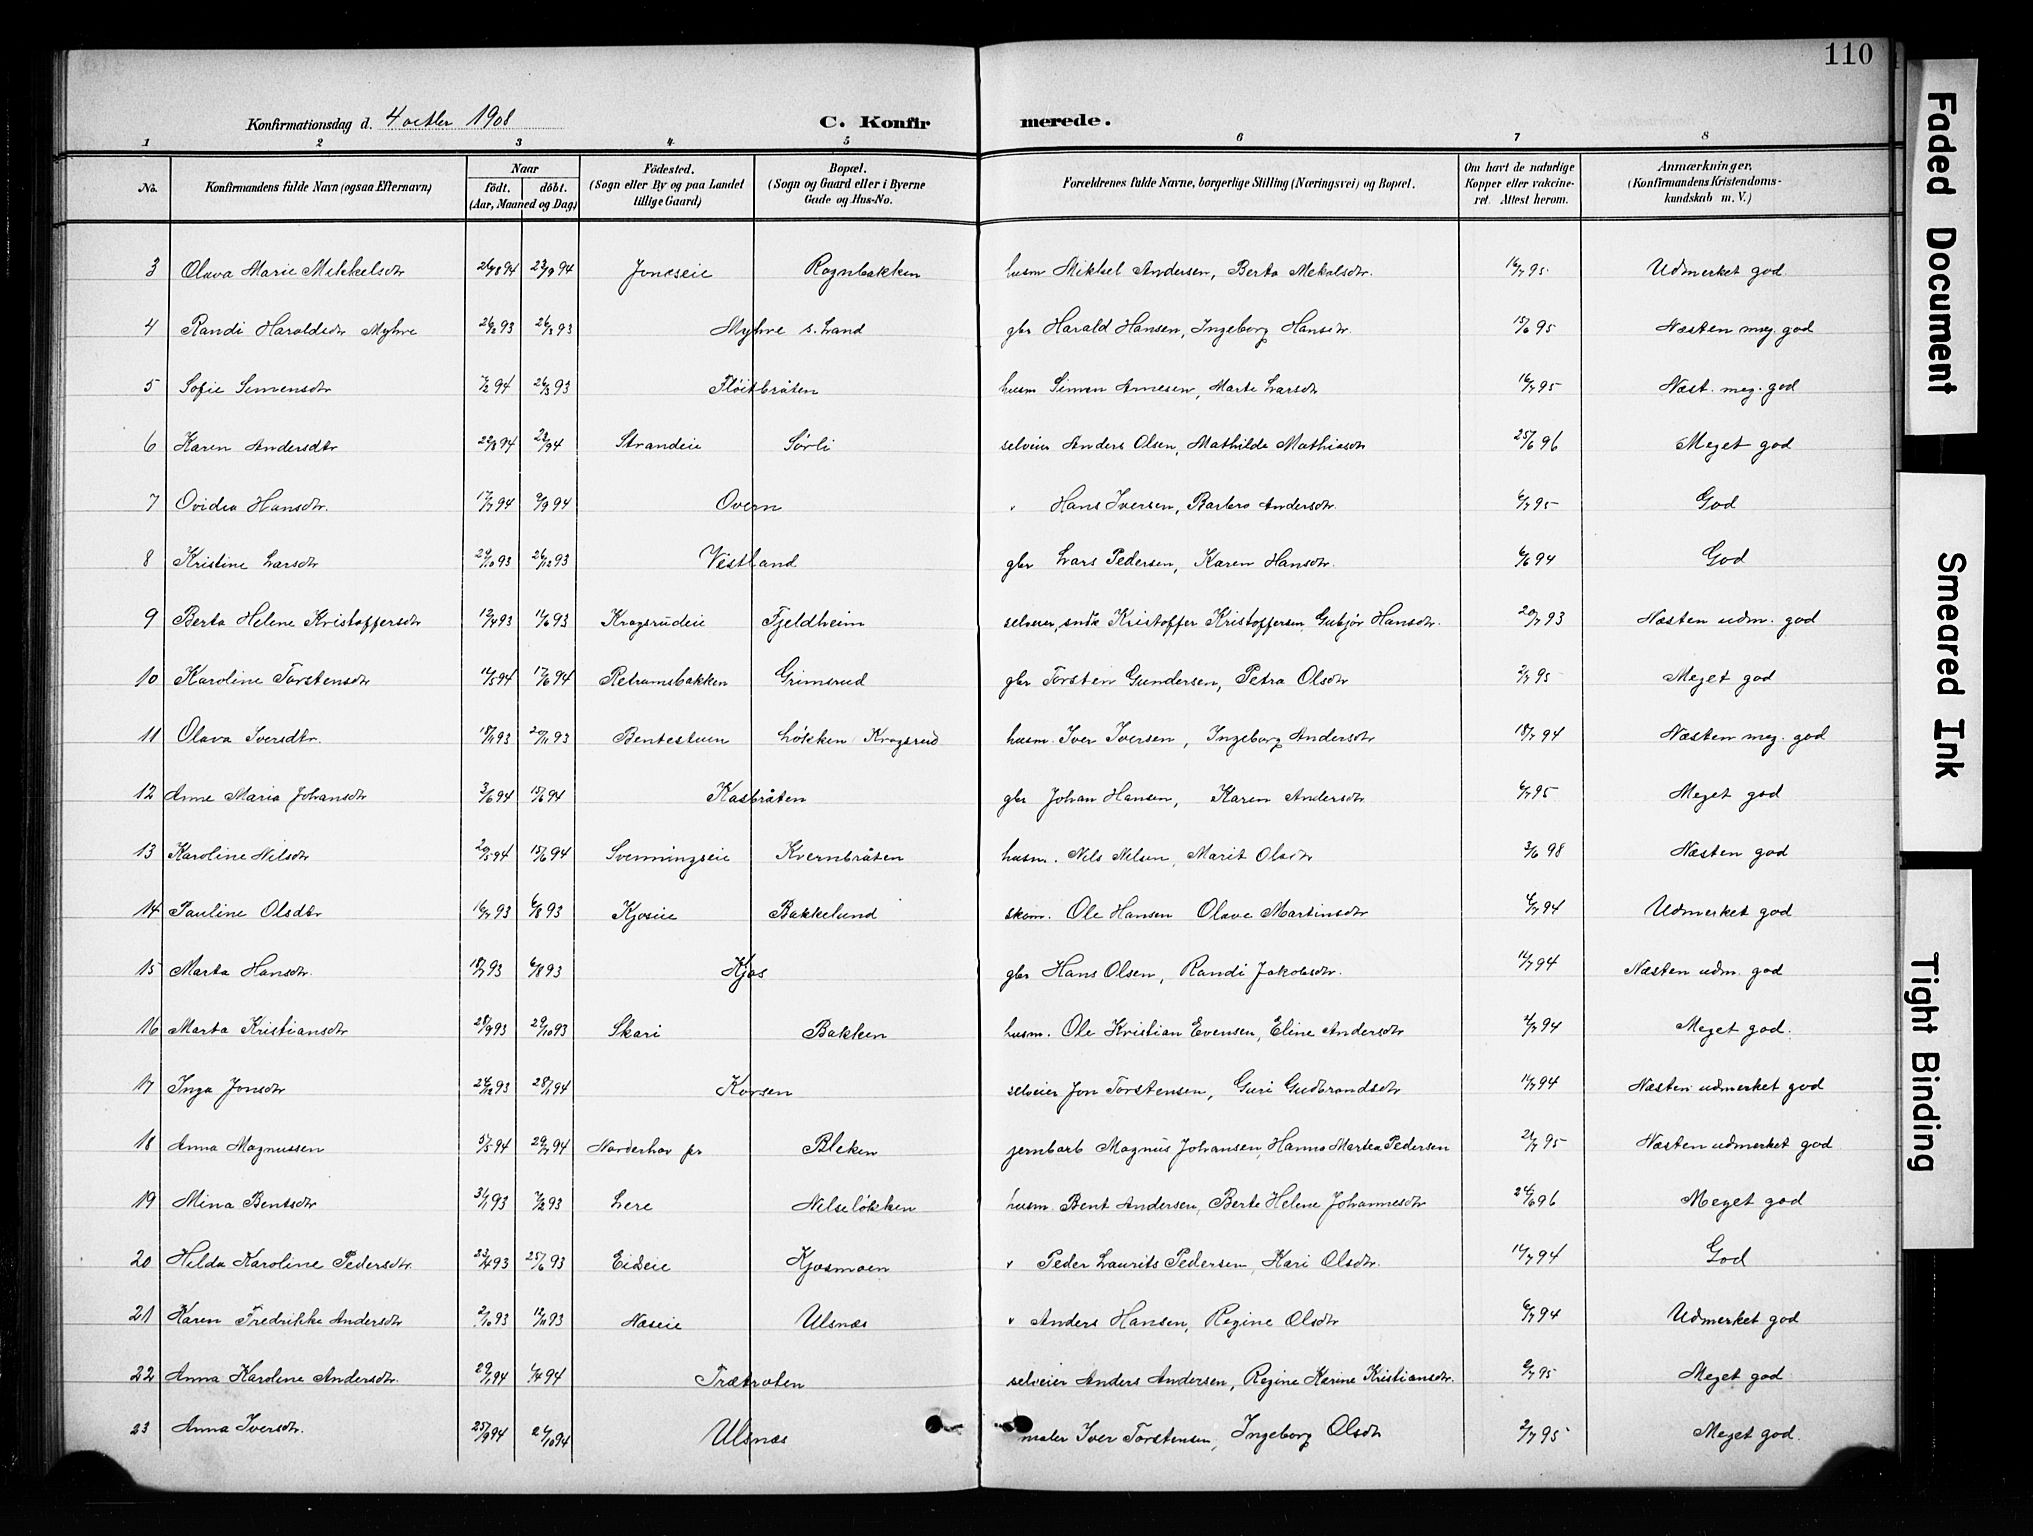 110
Konfirmationsdag d. 4 octbr 1908
C. Konfirmerede.
1 2 3 4 5 6 7 8
No. Konfirmandens fulde Navn (ogsaa Efternavn) Naar født. døbt. (Aar, Maaned og Dag) Fødested. (Sogn eller By og paa Landet tillige Gaard) Bopæl. (Sogn og Gaard eller i Byerne Gade og Hus-No. Forældrenes fulde Navne, borgerlige Stilling (Næringsvei) og Bopæl. Om havt de naturlige Kopper eller vakcineret. Attest herom. Anmærkninger. (Konfirmandens Kristendomskundskab m. V.)
3 Olava Marie Mikkelsdtr 26/8 94 23/9 94 Joneseie Rognbakken husm Mikkel Andersen, Berta Mekalsdtr. 16/7 95 Udmerket god
4 Randi Haraldsdtr Myhre 26/2 93 26/3 93 Myhre S. Land gbr Harald Hansen, Ingeborg Hansdtr 15/6 95 Næsten meg. god
5 Sofie Simensdtr 7/2 94 26/3 93 Fløitbråten husm Simen Arnesen, Marte Larsdtr 16/7 95 Næst. meg. god
6 Karen Andersdtr 22/8 94 Strandeie Sørli selveier Anders Olsen, Mathilde Mathiasdtr 25/6 96 Meget god
7 Ovidia Hansdtr. 17/7 94 9/9 94 Overn " Hans Iversen, Barbro Andersdtr. 6/7 95 God
8 Kristine Larsdtr 29/10 93 26/12 93 Vestland gbr Lars Pedersen, Karen Hansdtr. 6/6 94 God
9 Berta Helene Kristoffersdtr 12/4 93 11/6 93 Kragsrudeie Fjeldheim selveier, sndk Kristoffer Kristoffersen, Gubjør Hansdtr. 20/7 93 Næsten udm. god
10 Karoline Torstensdtr 14/5 94 17/6 94 Retrumsbakken Grimsrud gbr Torsten Gundersen, Petra Olsdtr 2/7 95 Meget god
11 Olava Iversdtr. 18/9 93 20/11 93 Bentestuen Løkken Kragsrud husm. Iver Iversen, Ingeborg Andersdtr 18/7 94 Næsten meg. god
12 Anne Maria Johansdtr 3/6 94 15/6 94 Kasbråten gbr Johan Hansen, Karen Andersdtr 6/7 95 Meget god
13 Karoline Nilsdtr 20/5 94 15/6 94 Svenningseie Kvernbråten husm. Nils Nilsen, Marit Olsdtr 3/6 98 Næsten god
14 Pauline Olsdtr 16/7 93 6/8 93 Kjoseie Bakkelund skom. Ole Hansen Olave Martinsdtr 4/7 94 Udmerket god
15 Marta Hansdtr. 18/7 93 6/8 93 Kjos gbr Hans Olsen, Randi Jakobsdtr. 12/7 94 Næsten udm. god
16 Marta Kristiansdtr 28/9 93 29/10 93 Skari Bakken husm. Ole Kristian Evensen, Eline Andersdtr 4/7 94 Meget god.
17 Inga Jonsdtr 24/12 93 28/1 94 Korsen selveier Jon Torstensen, Guri Gudbrandsdtr 11/7 94 Næsten udmerket god
18 Anna Magnussen 5/5 94 29/7 94 Norderhov pr Bleken jernbarb Magnus Johansen, Hanna Martea Pedersen 21/7 95 Næsten udmerket god
19 Mina Bentsdtr 3/1 93 7/2 93 Lere Nilseløkken husm. Bent Andersen, Berte Helene Johannesdtr 24/6 96 Meget god
20 Hilda Karoline Pedersdtr. 23/4 93 25/6 93 Eideie Kjosmoen " Peder Laurits Pedersen, Kari Olsdtr. 11/7 94 God
21 Karen Fredrikke Andersdtr 2/10 93 12/11 93 Næseie Ulsnæs " Anders Hansen, Regine Olsdtr 6/7 94 Udmerket god
22 Anna Karoline Andersdtr. 29/1 94 1/4 94 Trætraten selveier Anders Andersen, Regine Karine Kristiansdtr. 9/7 95 Meget god
23 Anna Iversdtr. 25/9 94 21/10 94 Ulsnæs maler Iver Torstensen, Ingeborg Olsdtr 2/7 95 Meget god.
Faded Document
Smeared Ink
Tight Binding